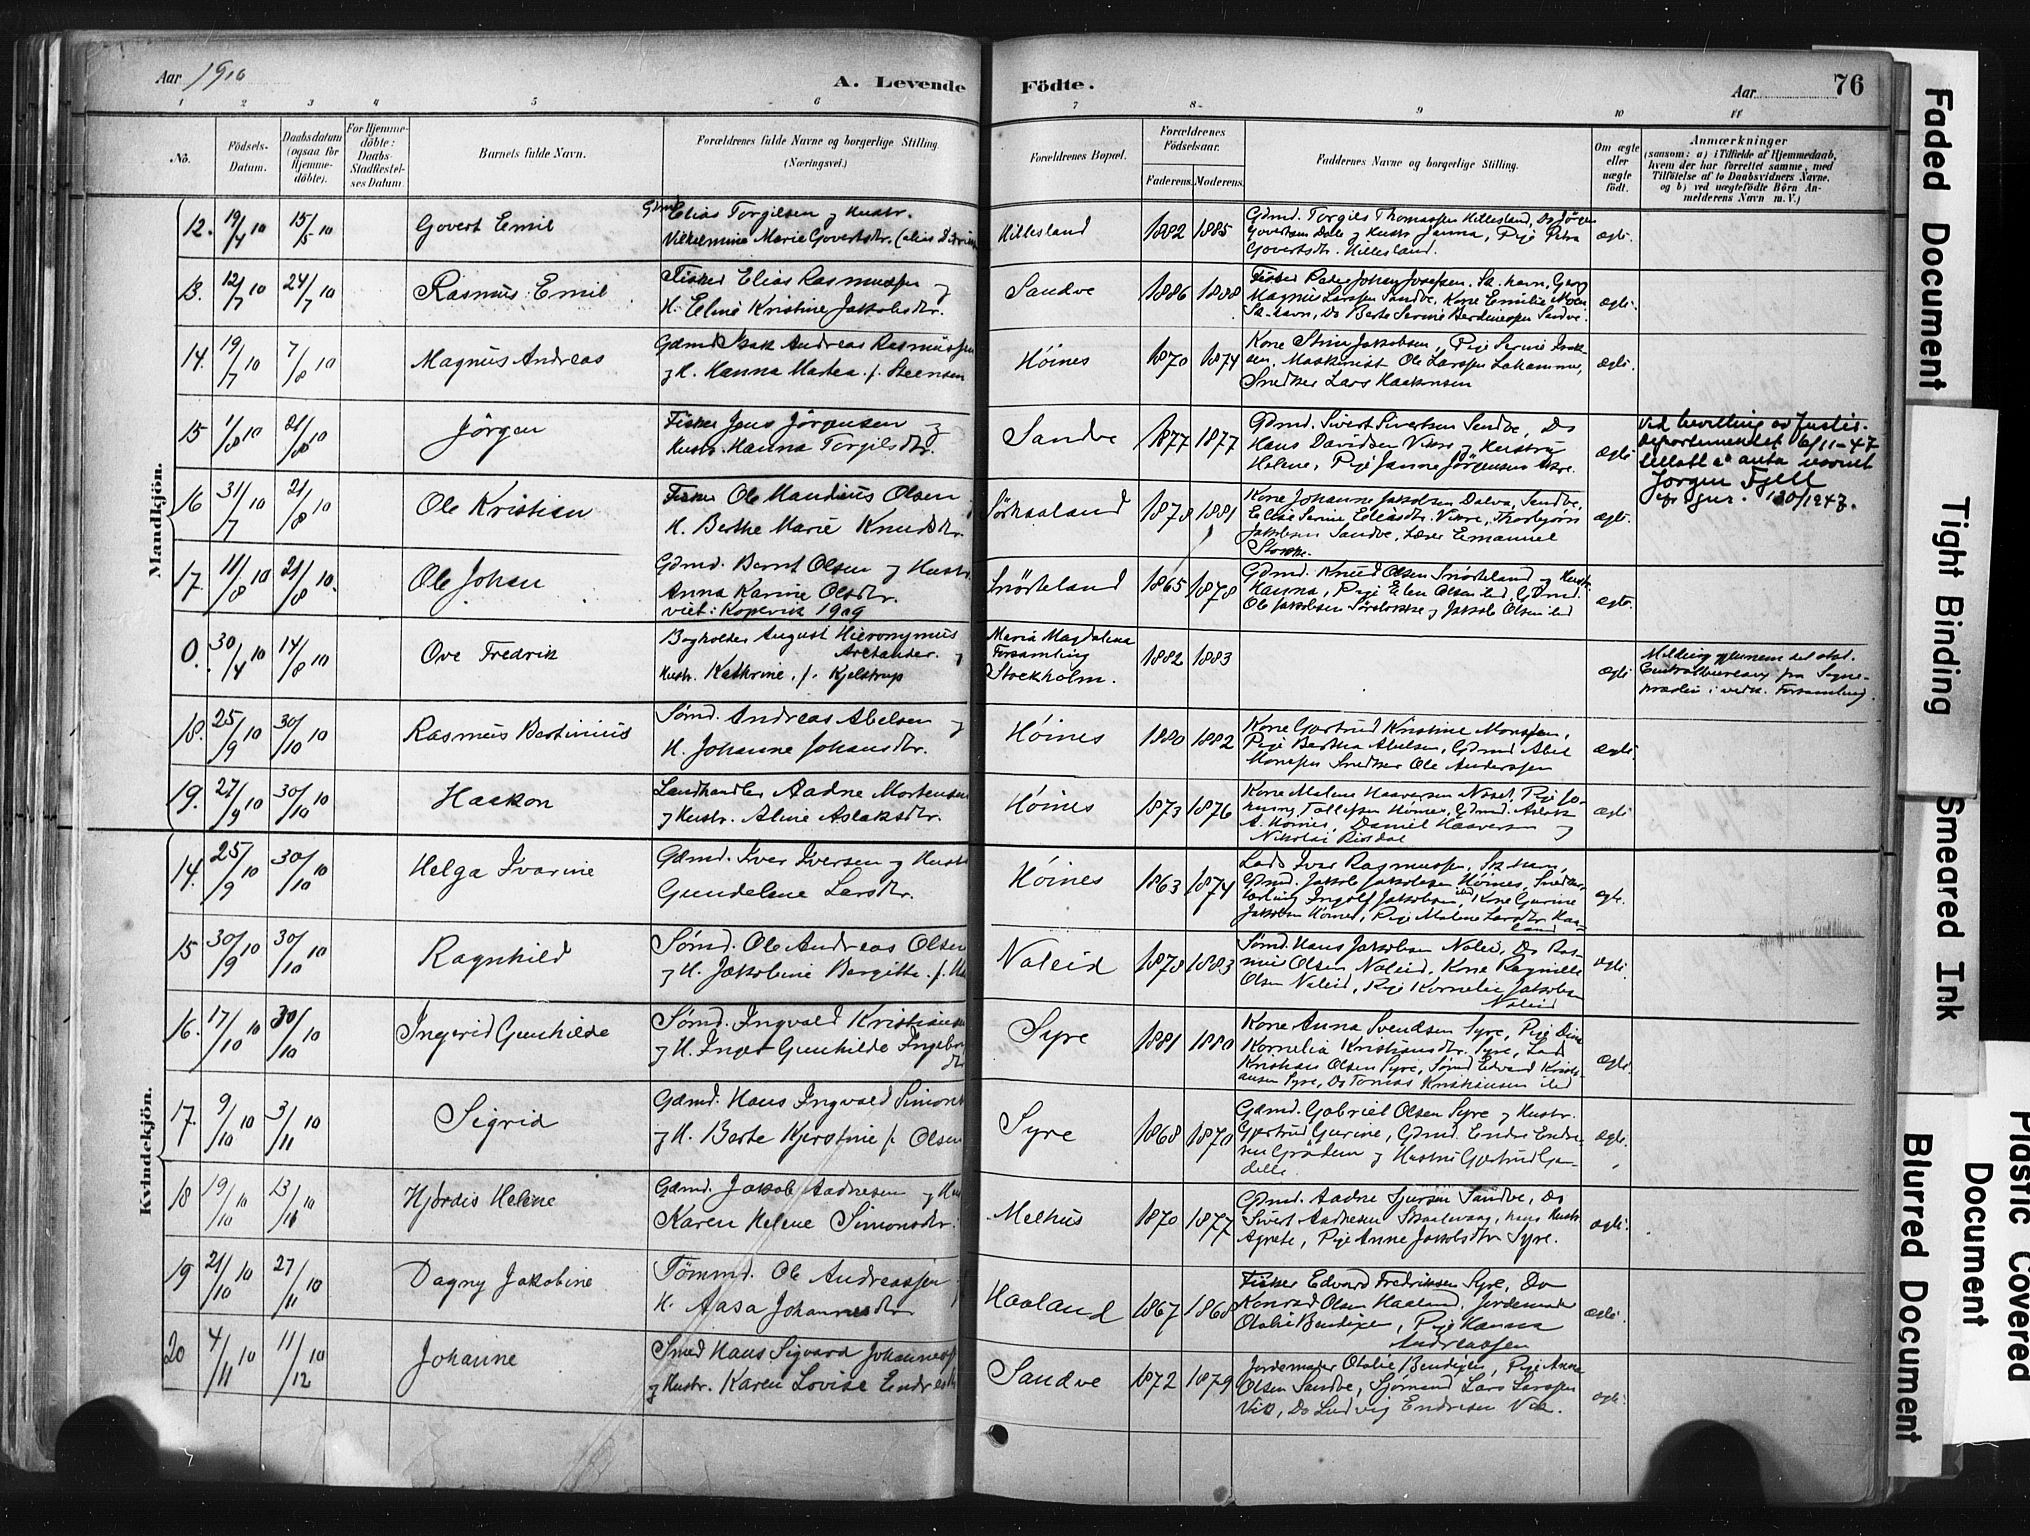 Aar 1910
A. Levende Födte.
Aar
76
1 2 3 4 5 6 7 8 9 10 11
No.
Födsels-Datum.
Daabsdatum (ogsaa for Hjemme-döbte).
For Hjemme-döbte: Daabs-Stadfæstel-ses Datum.
Barnets fulde Navn.
Forældrenes fulde Navne og borgerlige Stilling (Næringsvei.)
Forældrenes Bopæl.
Forældrenes Födselsaar.
Faderens. Moderens.
Faddernes Navne og borgerlige Stilling.
Om ægte eller uægte födt.
Anmærkninger
(saasom: a) i Tilfælde af Hjemmedaab,
hvem der har forrettet samme, med
Tilföielse af to Daabsvidners Navne,
og b) ved uægtefödte Börn An-
melderens Navn m. V.)
Mandkjön.
12. 19/4 10 15/5 10 Govert Emil
Gdmd Elias Torgilsen og Hustr.
Vilhelmine Marie Govertsdtr.
Hillesland 1882 1885
Gdmd. Torgils Thomassen Hillesland, Do Jørgen
Govertsen Dale og Hustr Janna, Pige Petra
Govertsdtr. Hillesland.
ægte.
13. 12/7 10 24/7 10 Rasmus Emil
Fisker Elias Rasmussen og
H. Eline Kristine Jakobsdtr.
Sandve 1886 1888
Fisker Peder Johan Josefsen, Sk.havn, Georg
Magnus Larssen Sandve, Kone Emilie
Sk.havn, Do Berte Serine Berdinesen Sandve
ægte.
14. 19/7 10 7/8 10 Magnus Andreas
Gdmd Isak Andreas Rasmussen
og H. Hanna Martea f. Steensen
Høines 1870 1874
Kone Stine Jakobsen, Pige Serine Isak-
sen, Maskinist Ole Larssen Lahamme,
Snedker Lars Haakonsen
ægte.
15 1/8 10 21/8 10 Jörgen
Fisker Jens Jörgensen og
Hustr. Hanna Torgilsdtr.
Sandve 1877 1877
Gdmd. Sivert Sivertsen Sandve, Do
Hans Davidsen Vikre og Hustru
Helene, Pige Janne Jörgensen
ægte
Ved bevilling av Justis-
departementet 6/11-47
tillatt å anta navnet
Jörgen Fjell
16 31/7 10 21/8 10 Ole Kristian
Fisker Ole Mandius Olsen
H. Berthe Marie Knudsdtr.
Sörhaaland 1878 1881
Kone Johanne Jakobsen Dalva, Sandve,
Elise Serine Eliasdtr. Vikre, Thorbjørn
Jakobsen Sandve, Lærer Emanuel
ægte.
17. 11/8 10 21/8 10. Ole Johan
Gdmd. Bernt Olsen og Hustr.
Anna Karine Olsdtr.
viet: Kopervik 1909
Snörteland 1865 1878
Gdmd. Knud Olsen Snörteland og Hustr.
Hanna, Pige Elen Olsen ibd, Gdmd.
Ole Jakobsen og Jakob Olsen ibd
ægte.
0. 30/4 10 14/8 10 Ove Fredrik
Bogholder August Hieronymus
Arctander og
Hustr. Kathrine, f. Kjelstrup
Maria Magdalena
Forsamling
Stockholm.
1882 1883
ægte
Melding gjennem det stat.
Centralbureau fra Sogne-
presten i vedk. Forsamling.
18. 25/9 10 30/10 10 Rasmus Bertinius
Sømd. Andreas Abelsen og
H. Johanne Johansdtr.
Høines 1880 1882
Kone Gjertrud Kristine Monssen,
Pige Bertha Abelsen, Gdmd Abel
Monssen Snedker Ole Anderssen
ægte.
19. 27/9 10 30/10 10 Haakon
Landhandler Aadne Mortensen
og Hustr. Aline Aslaksdtr.
Høines 1873 1876
Kone Malene Haaversen Næset, Pige Jo-
hanne Tollefsen Høines, Gdmd. Aslak
A. Høines, Daniel Haaversen og
Nikolai
ægte
Kvindekjön.
14. 25/9 10 30/10 10 Helga Ivarine
Gdmd. Iver Iversen og Hustr
Gundelene Larsdtr.
Høines 1863 1874
Lods Iver Rasmussen, Sk.havn,
Gdmd. Jakob Jakobsen Høines, Snedker-
lærling Ingolf Jakobsen ibd, Kone Gurine
Jakobsen Høines, Pige Malene Larsdtr. Haa-
land
ægte.
15 30/9 10 30/10 10 Ragnhild
Sømd. Ole Andreas Olsen
og H. Jakobine Bergitte f.
Noleid 1878 1883
Sømd. Hans Jakobsen Noleid, Do Ras-
mus Olsen Noleid, Kone Ragnille
Olsen Noleid, Pige Kornelie Jakobsen
Noleid
ægte.
16. 17/10 10 30/10 10 Ingerid Gunhilde
Sømd. Ingvald Kristiansen
og H. Inger Gunhilde Ingebr
dtr.
Syre 1881 1880
Kone Anna Svendsen Syre, Pige Dine
Kornelia Kristiansdtr. Syre, Lods
Kristian Olsen Syre, Sømd Edvard Kristi-
ansen Syre, Do Tomas Kristiansen ibd
ægte.
17. 9/10 10 3/11 10 Sigrid
Gdmd. Hans Ingvald Simons
og H. Berte Kjerstine f. Olsen
Syre 1868 1870
Gdmd. Gabriel Olsen Syre og Hustr.
Gjertrud Gurine, Gdmd. Endre Endre-
sen Grödem og Hustru Gjertrud Gun-
delle
ægte.
18 19/10 10 13/11 10 Hjördis Helene
Gdmd. Jakob Aadnesen og Hus
Karen Helene Simonsdtr.
Melhus 1870 1877
Gdmd. Aadne Sjursen Sandve, Do
Sivert Aadnesen, hans Hustr
Agnete, Pige Anne Jakobsdtr Syre.
ægte.
19 21/10 10 27/11 10 Dagny Jakobine
Tømmd. Ole Andreassen
H. Aasa Johannesdtr
Haaland 1867 1868
Fisker Edvard Fredriksen Syre, Do
Konrad Olsen Haaland, Jordemoder
Otalie Bendixen, Pige Hanna
Andreassen
ægte.
20 4/11 10 11/12 10 Johanne
Smed Hans Sigvard Johannes
og Hustr. Karen Lovise Endresdtr
Sandve 1872 1879
Jordemoder Otalie Bendixen, Pige Anne
Olsen Sandve, Sjømand Lars Larssen
Vik, Do Ludvig Endresen Vik.
ægte.
Faded Document
Tight Binding
Smeared Ink
Plastic Covered
Document
Blurred Document